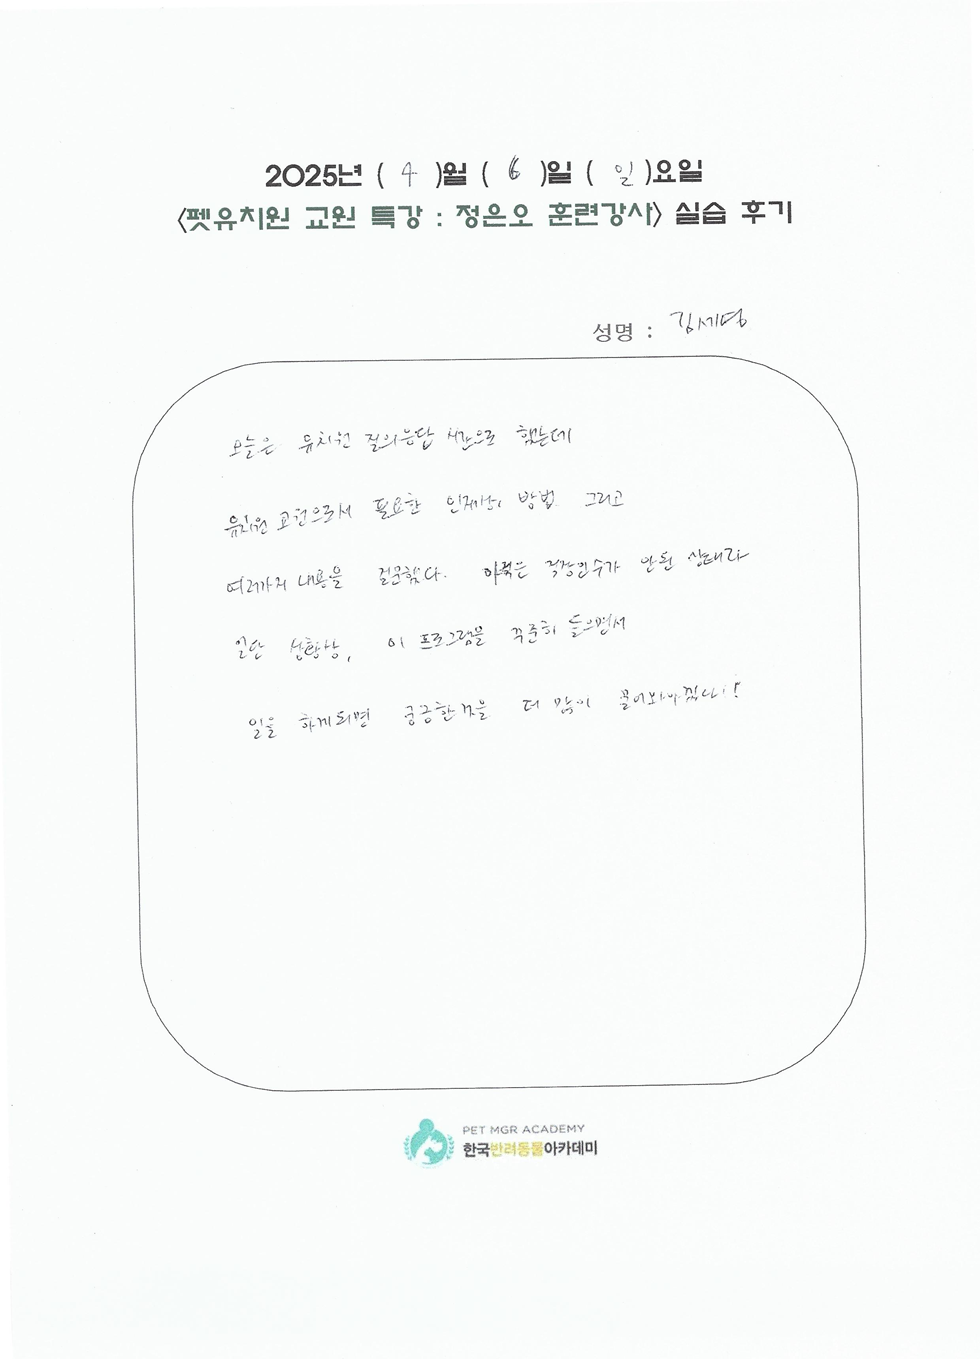 2025년 ( 4 )월 ( 6 )일 ( 일 )요일
<펫유치원 교원 특강 : 정은오 훈련강사> 실습 후기
성명 : 김세명
오늘은 유치원 질의응답 시간으로 했는데
유치원 교원으로서 필요한 인재상, 방법 그리고
여러가지 내용을 질문했다. 아직은 직장인수가 안된 상태라
일단 상황상, 이 프로그램을 꾸준히 들으면서
일을 하게되면 궁금한것을 더 많이 물어봐야겠다!
PET MGR ACADEMY
한국반려동물아카데미